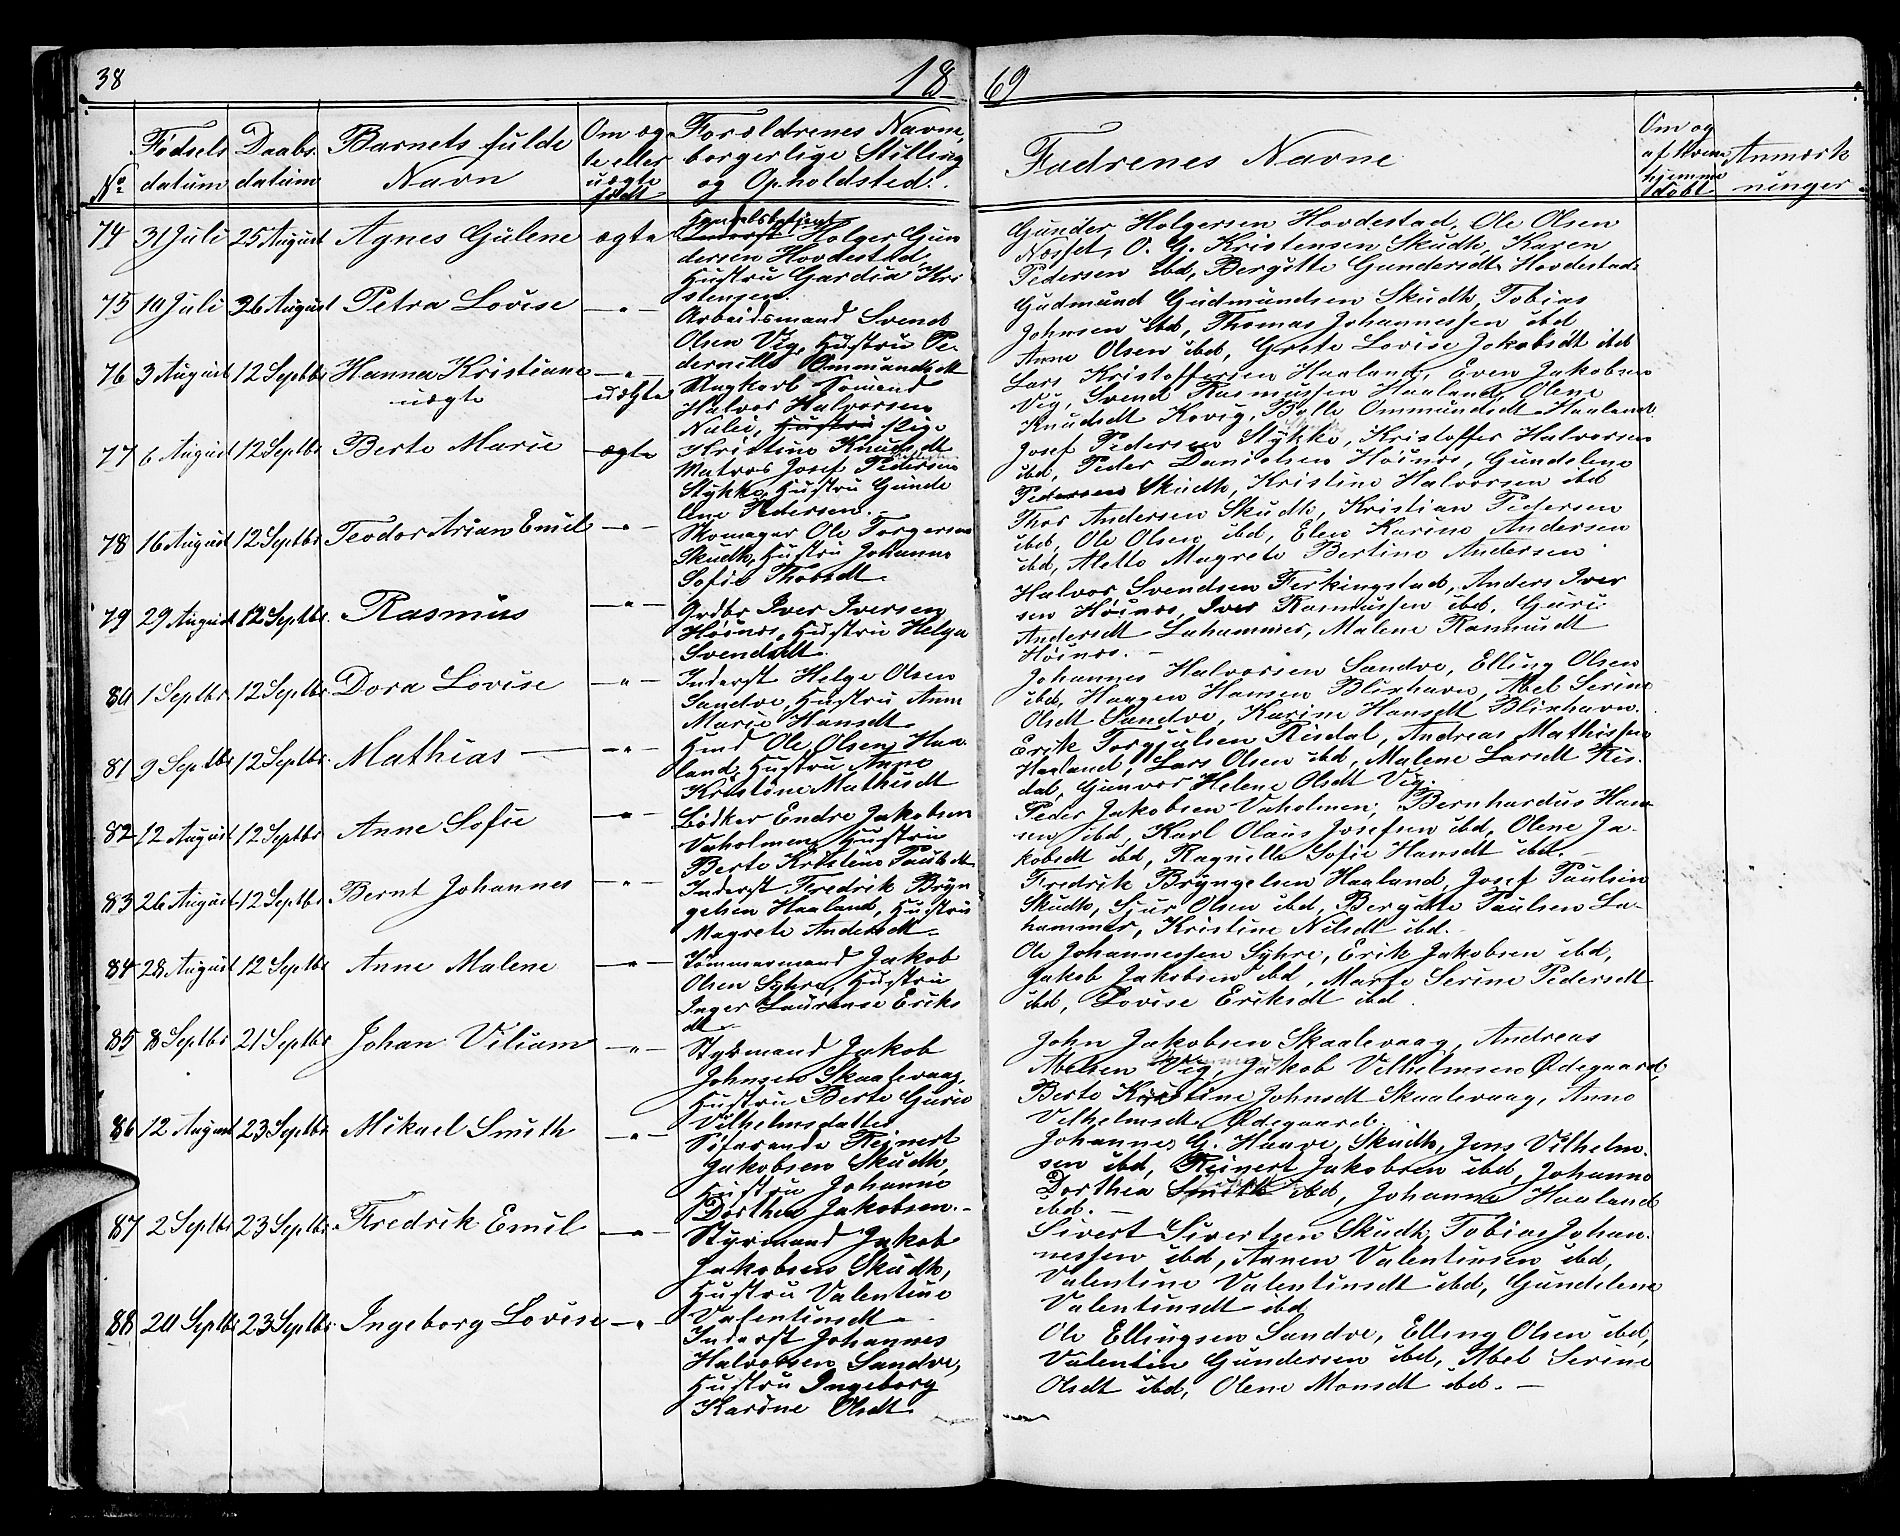 38
18
69
No.
Fødsels datum
Daabs datum
Barnets fulde Navn
Om ægte eller uægte født
Forældrenes Navne, borgerlige Stilling og Opholdsted.
Fadrenes Navne
Om og af Hvem hjemmedøbt
Anmærkninger
74 31 Juli 25 August Agnes Gulene ægte
Handelsbetjent
Inderst Holger Gun
dersen Hovdestad
Hustru Gardia Kri
stensen.
Gunder Holgersen Hovdestad, Ole Olsen
Næsset, O. G. Kristensen Skudh, Karen
Pedersen ibd, Bergitte Gundersdt Hovdestad.
75 10 Juli 26 August Petra Lovise — " —
Arbeidsmand Svend
Olsen Vig, Hustru Pe-
dernille Ommundsdt
Gudmund Gudmundsen Skudh, Tobias
Johnsen ibd, Thomas Johannessen ibd,
Anne Olsen ibd, Grete Lovise Jakobsdt ibd
76 3 August 12 Septbr Hanna Kristiane — " —
uægte
uægte
Ungkarl Sømand
Halvor Halvorsen
Hustru Pige
Kristine Knudsdt
Lars Kristoffersen Haaland, Even Jakobsen
Vig, Svend Rasmussen Haaland, Olene
Knudsdt Kovig, Ommundsdt Haaland.
77 6 August 12 Septbr Berte Marie ægte
Matros Josef Pedersen
Stykke, Hustru Gunde
lene Pedersen.
Josef Pedersen Stykke, Kristoffer Halvorsen
ibd, Peder Danielsen Høines, Gundelene
Pedersen Skudh, Kristine Halvorsen ibd
78 16 August 12 Septbr Teodor Arian Emil — " —
Skomager Ole Torgersen
Skudh, Hustru Johanne
Sofie Thorsdt.
Thor Andersen Skudh, Kristian Pedersen
ibd, Ole Olsen ibd, Elen Karine Andersen
ibd, Aletta Magrete Bertine Andersen
79 29 August 12 Septbr. Rasmus — " —
Grdbr Iver Iversen
Høines, Hustru Helga
Svendsdt.
Halvor Svendsen Ferkingstad, Anders Iver
sen Høines, Iver Rasmussen ibd, Guri
Andersdt Lahammer, Malene Rasmusdt
Høines. —
80 1 Septbr. 12 Septbr Dora Lovise — " —
Inderst Helge Olsen
Sandve, Hustru Anne
Marie Hansdt.
Johannes Halvorsen Sandve, Elling Olsen
ibd, Haagen Hansen Blixhavn, Abel Serine
Olsdt Sandve, Karine Hansdt Blixhavn.
81 9 Septbr 12 Septbr. Mathias — — " —
Hmd Ole Olsen Haa
land, Hustru Anne
Kristine Mathisdt
Erik Torgiulsen Risdal, Andreas Mathissen
Haaland, Lars Olsen ibd, Malene Larsdt Ris-
dal, Gunvor Helene Olsdt Vig.
82 12 August 12 Septbr Anne Sofie — " —
Bødker Endre Jakobsen
Vaholmen, Hustru
Berte Kristine Paulsdt
Peder Jakobsen Vaholmen, Bernhardus Han
sen ibd, Karl Olaus Josefsen ibd, Olene Ja-
kobsdt ibd, Ragnille Sofie Hansdt ibd. —
83 26 August 12 Septbr Bernt Johannes — " —
Inderst Fredrik Bryn
gelsen Haaland, Hustru
Magrete Andersdt.
Fredrik Bryngelsen Haaland, Josef Paulsen
Skudh, Sjur Olsen ibd, Bergitte Paulsen La-
hammer, Kristine Nilsdt ibd.
84 28 August 12 Septbr Anne Malene — " —
Tømmermand Jakob
Olsen Syhre, Hustru
Inger Laurense Eriks
dt
Ole Johannessen Syhre, Erik Jakobsen ibd,
Jakob Jakobsen ibd, Marte Serine Pedersdt
ibd, Lovise Eriksdt ibd.
85 8 Septbr 21 Septbr Johan Viliam — " —
Styrmand Jakob
Johnsen Skaalevaag,
Hustru Berte Gurie
Vilhelmsdatter
John Jakobsen Skaalevaag, Andreas
Abelsen Vig, Jakob Vilhelmsen Ødegaard,
Berte Kristine Johnsdt Skaalevaag, Anne
Vilhelmsdt Ødegaard.
86 12 August 23 Septbr Mikael Smith — " —
Søfarende Reinert
Jakobsen Skudh,
Hustru Johanne
Dorthea Jakobsen. —
Johannes G. Haave, Skudh, Jens Vilhelm-
sen ibd, Reinert Jakobsen ibd, Johanne
Dorthea Smith ibd, Johanne Haaland
ibd. —
87 2 Septbr 23 Septbr Fredrik Emil — " —
Styrmand Jakob
Jakobsen Skudh,
Hustru Valentine
Valentinsdt.
Sivert Sivertsen Skudh, Tobias Johan-
nessen ibd, Annen Valentinsen ibd,
Valentine Valentinsdt ibd, Gundelene
Valentinsdt ibd.
88 20 Septbr 23 Septbr. Ingeborg Lovise — " —
Inderst Johannes
Halvorsen Sandve,
Hustru Ingeborg
Karine Olsdt.
Ole Ellingsen Sandve, Elling Olsen ibd,
Valentin Gundersen ibd, Abel Serine
Olsdt ibd, Olene Monsdt ibd. —